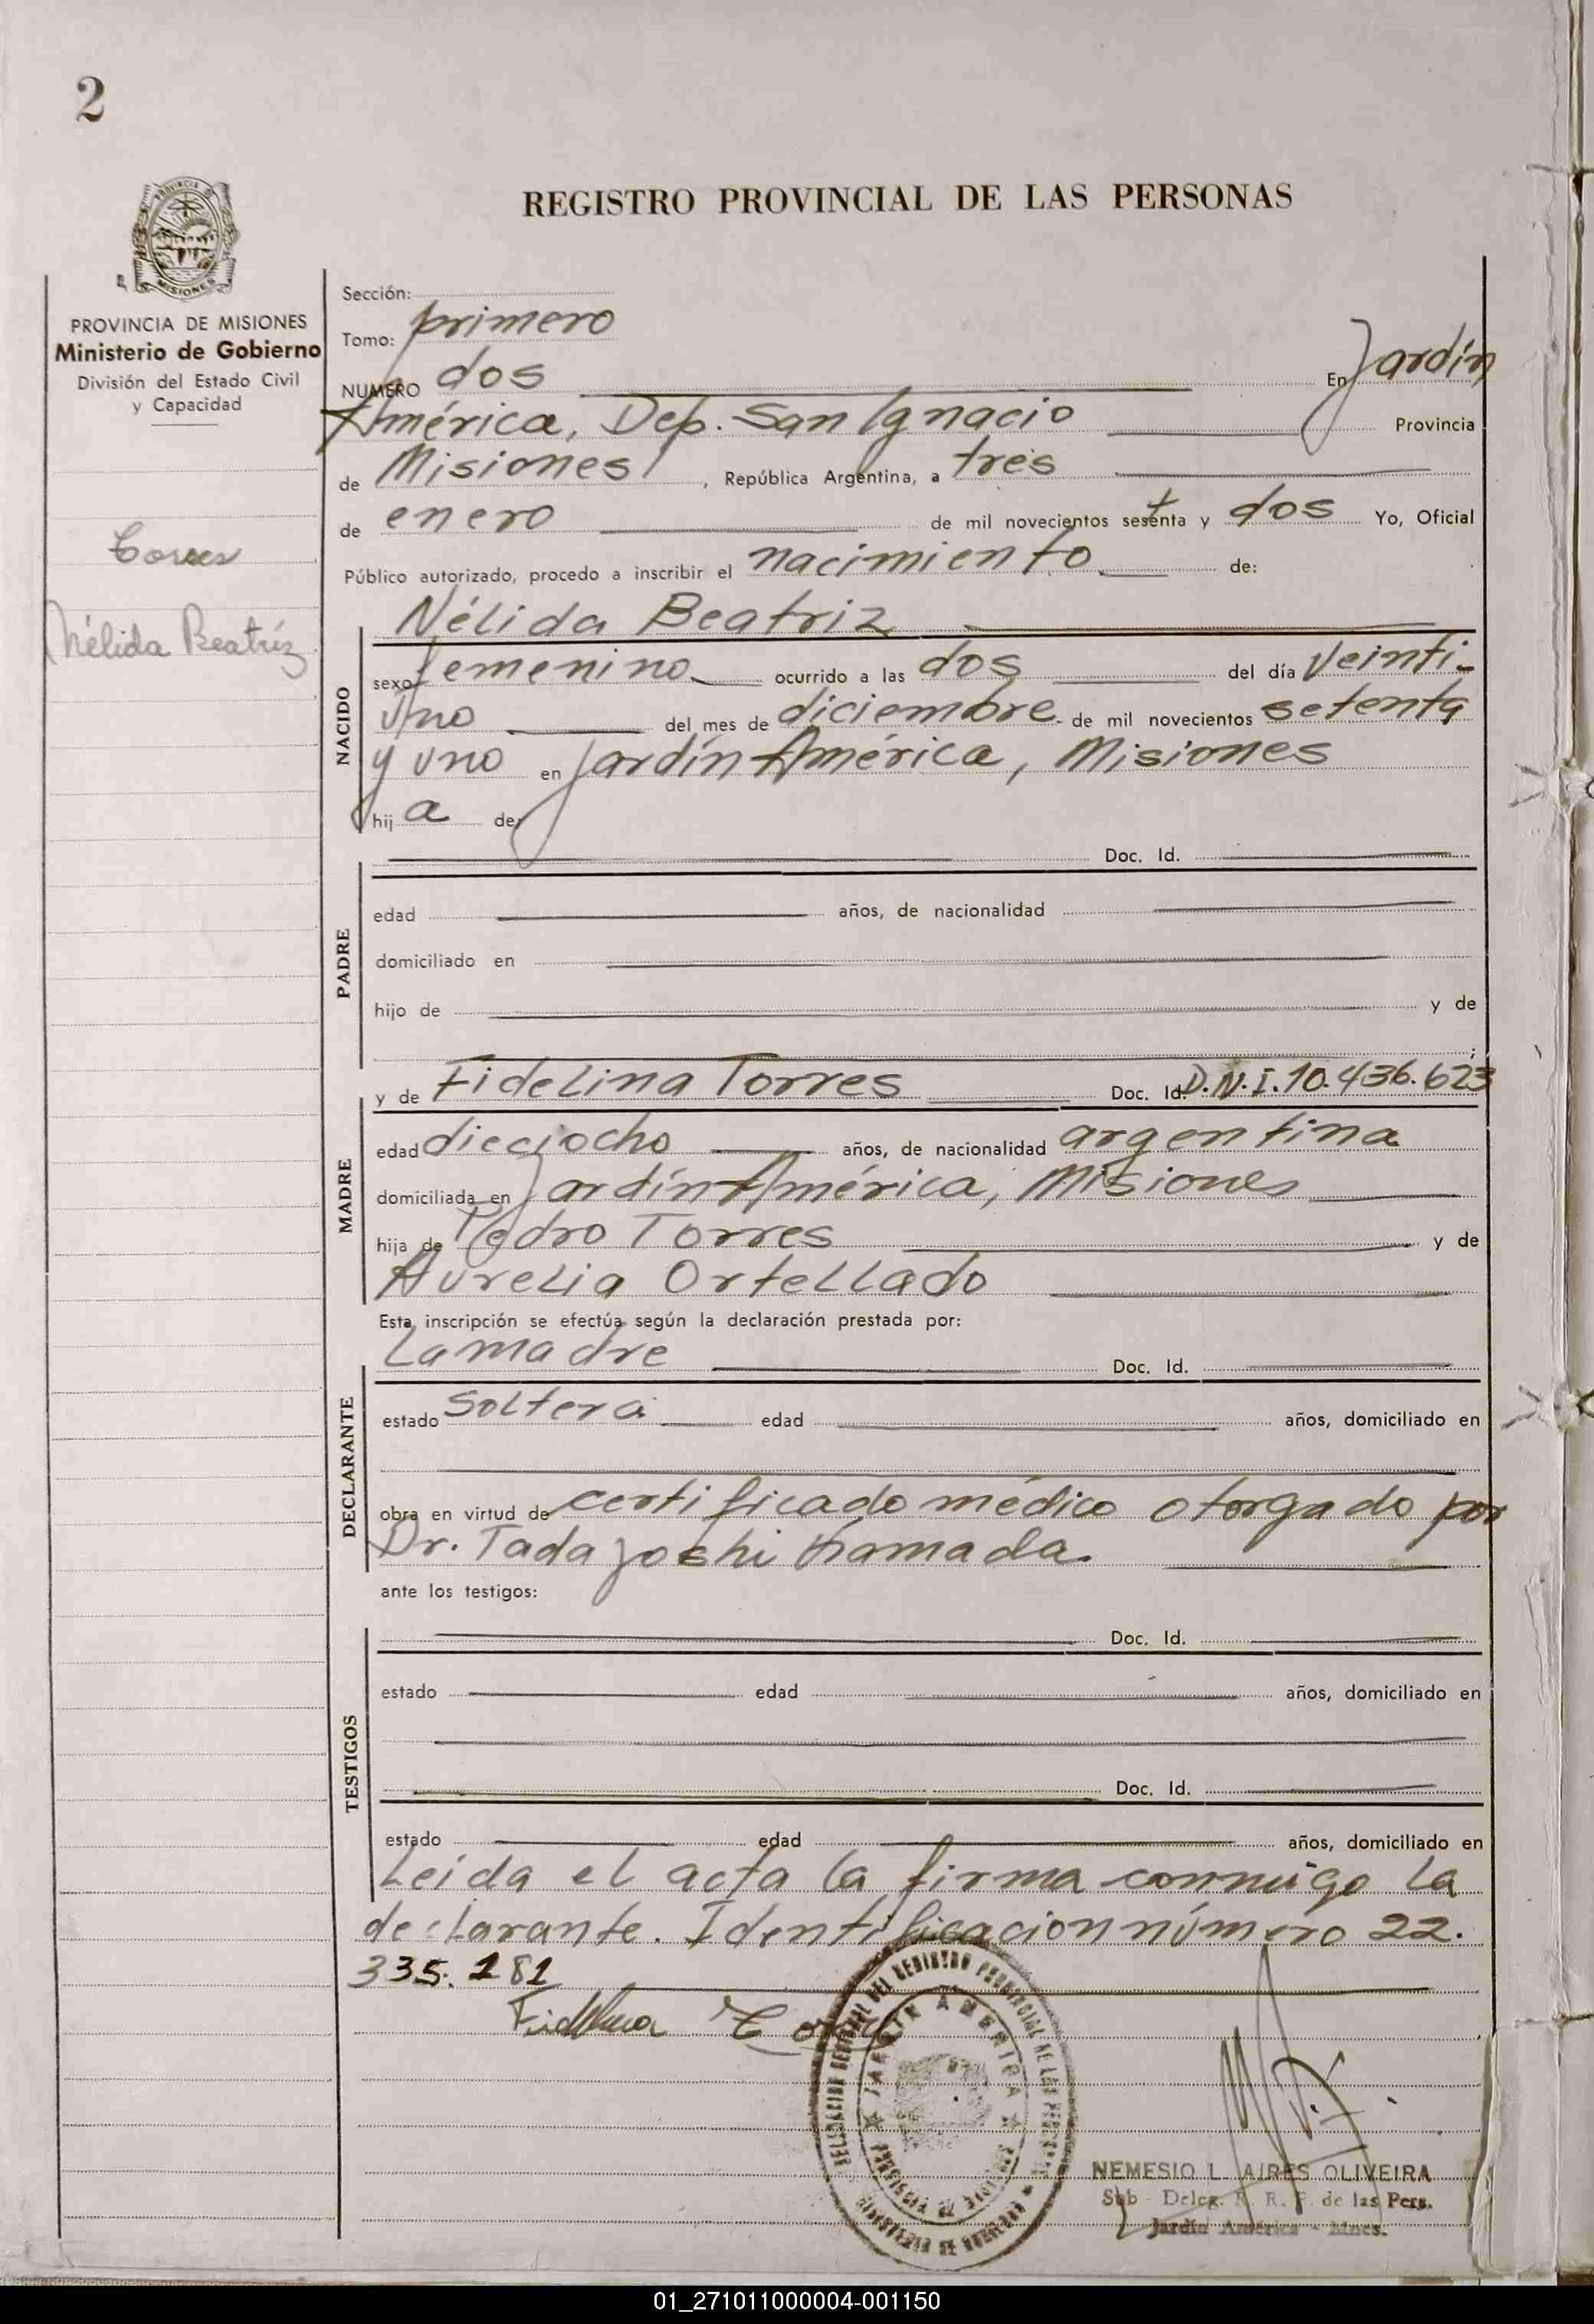 2
REGISTRO PROVINCIAL DE LAS PERSONAS
PROVINCIA DE MISIONES
Ministerio de Gobierno
División del Estado Civil
y Capacidad
Torres
Nélida Beatríz
Sección:
Tomo: primero
NUMERO dos En Jardín
América, Dep. San Ignacio Provincia
de Misiones, República Argentina, a tres
de enero de mil novecientos sesenta y dos Yo, Oficial
Público autorizado, procedo a inscribir el nacimiento de:
Nélida Beatriz
NACIDO
sexo femenino ocurrido a las dos del día veinti-
uno del mes de diciembre de mil novecientos setenta
y uno en Jardín América, Misiones
hij a de:
Doc. Id.
PADRE
edad años, de nacionalidad
domiciliado en
hijo de y de
;
y de Fidelina Torres Doc. Id. D.N.I. 10.436.623
MADRE
edad dieciocho años, de nacionalidad argentina
domiciliada en Jardín América, Misiones
hija de Pedro Torres y de
Aurelia Ortellado
Esta inscripción se efectúa según la declaración prestada por:
La madre Doc. Id.
DECLARANTE
estado soltera edad años, domiciliado en
obra en virtud de certificado médico otorgado por
Dr. Tada Joshi Hamada.
ante los testigos:
Doc. Id.
TESTIGOS
estado edad años, domiciliado en
Doc. Id.
estado edad años, domiciliado en
Leida el acta la firma conmigo la
declarante. Identificacion número 22.
335.181
Fidelina Torres
JARDIN AMERICA
NEMESIO L. AIRES OLIVEIRA
Sub - Deleg. R. R. P. de las Pers.
Jardín América - Mnes.
01_271011000004-001150